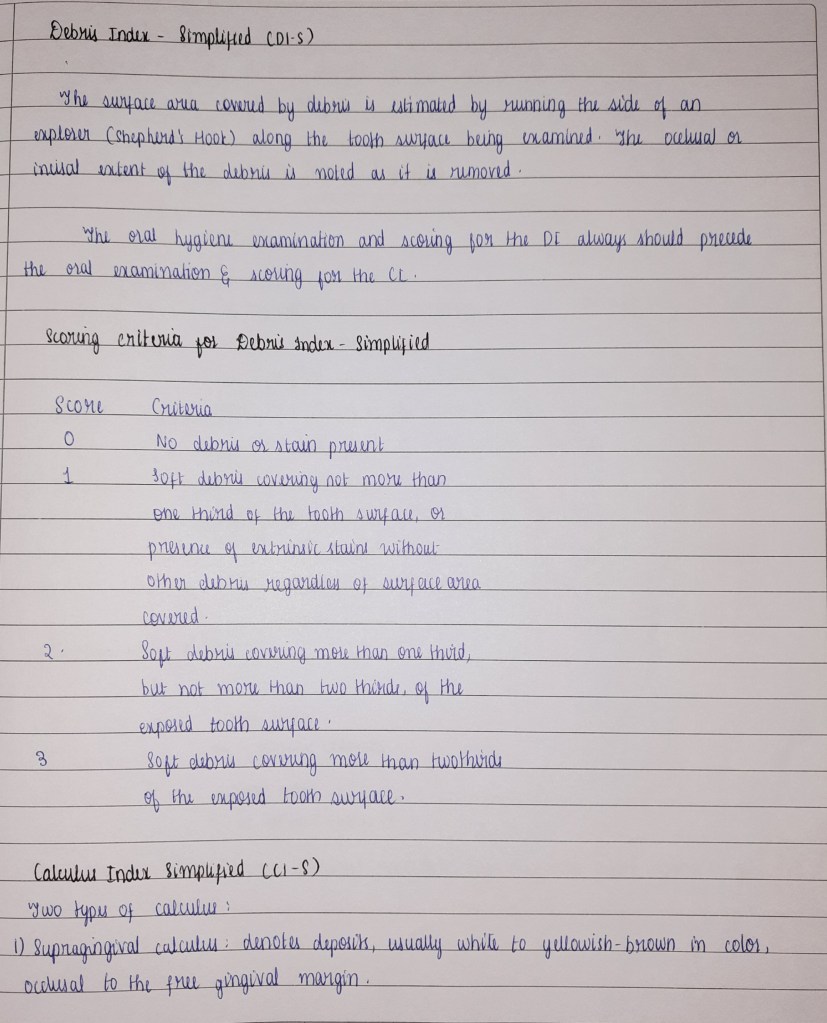 Debris Index - Simplified (DI-S)
The surface area covered by debris is estimated by running the side of an
explorer (Shepherd's Hook) along the tooth surface being examined. The occlusal or
incisal extent of the debris is noted as it is removed.
The oral hygiene examination and scoring for the DI always should precede
the oral examination & scoring for the CI.
Scoring criteria for Debris Index - Simplified
Score Criteria
0 No debris or stain present
1 Soft debris covering not more than
one third of the tooth surface, or
presence of extrinsic stains without
other debris regardless of surface area
covered.
2. Soft debris covering more than one third,
but not more than two thirds, of the
exposed tooth surface.
3 Soft debris covering more than twothirds
of the exposed tooth surface.
Calculus Index Simplified (CI-S)
Two types of calculus:
1) Supragingival calculus: denotes deposits, usually white to yellowish-brown in color,
occlusal to the free gingival margin.